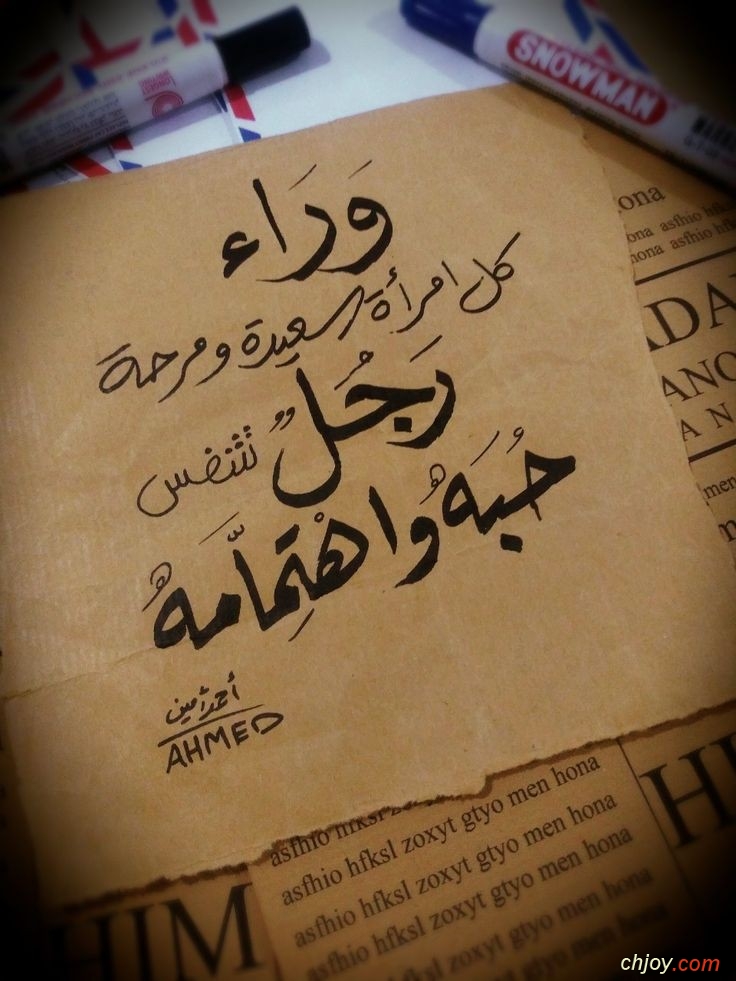 SNOWMAN
وَرَاء
كل امرأة سعيدة ومرحة
رَجُلٌ تتنفس
حُبَهُ وَاهْتِمَّامَهُ
أحمد أمين
AHMED
ona
asfhio hfk
hona asfhio hf
asfhio hfksl zoxyt gtyo men hona
asfhio hfksl zoxyt gtyo men hona
asfhio hfksl zoxyt gtyo men hona
asfhio hfksl zoxyt gtyo men hona
HIM
chjoy.com